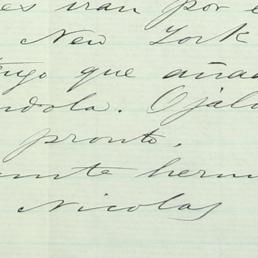 es iran por e
New York
engo que añad
ndola. Ojal
pronto.
amte herm
Nicolas